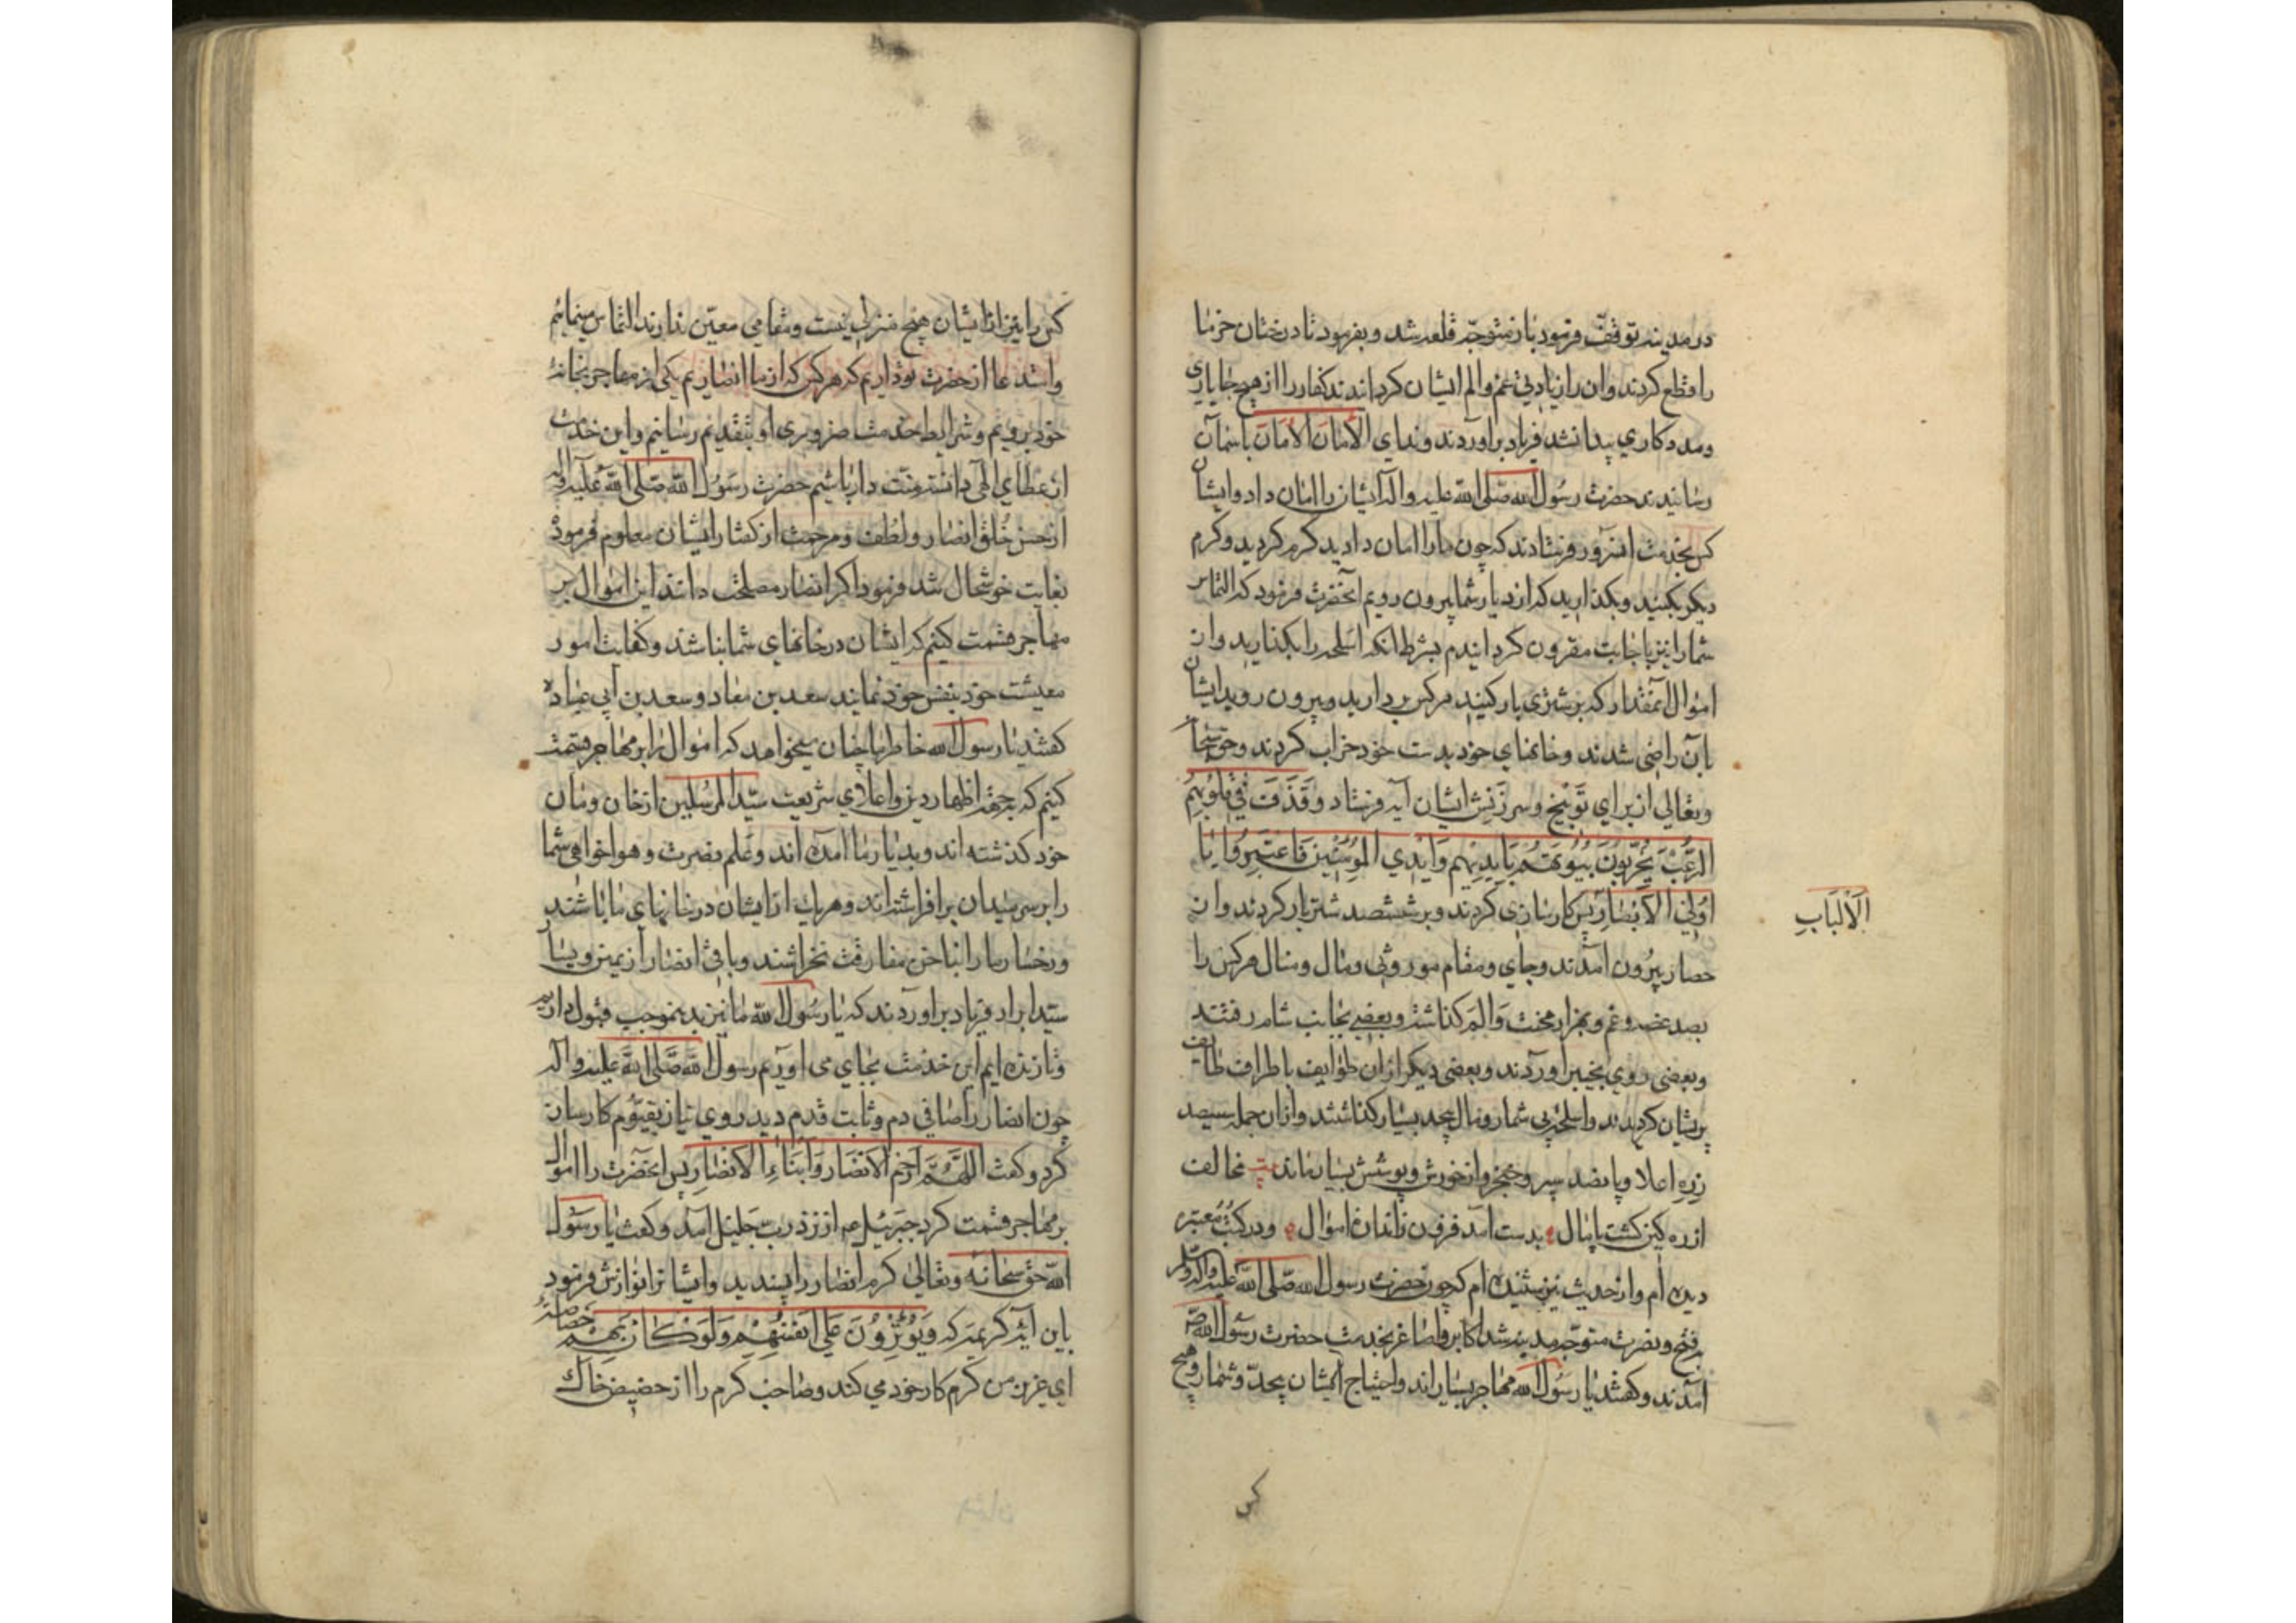 در مدینه توقف فرمود باز متوجه قلعه شد و بفرمود تا درختان خرما
را قطع کردند و ان را زیادتی غم والم ایشان کردانیدند کفار را از هیچ جا یاری
و مدد کاری پیدا نشد فریاد براوردند و ندای الامان الامان باسمان
رسانیدند حضرت رسول الله صلی الله علیه واله ایشان را امان داد و ایشان
کس بخدمت انسرور فرستادند که چون ما را امان دادید کرم کردید و کرم
دیکر بکنید و بکذارید که از دیار شما بیرون رویم انحضرت فرمود که التماس
شما را نیز باجابت مقرون کردانیدم بشرط انکه اسلحه را بکذارید و از
اموال انمقدار که بر شتری بار کنید هرکس بردارید و بیرون روید ایشان
بان راضی شدند و خانهای خود بدست خود خراب کردند و حق سبحانه
وتعالی از برای توبیخ و سرزنش ایشان آیه فرستاد وَقَذَفَ فِي قُلُوبِهِمُ
الرُّعْبَ يُخْرِبُونَ بُيُوتَهُمْ بِأَيْدِيهِمْ وَأَيْدِي الْمُؤْمِنِينَ فَاعْتَبِرُوا يَا
أُولِي الْأَبْصَارِ پس کارسازی کردند و بر ششصد شتر بار کردند و از
الْأَلْبَابِ
حصار بیرون آمدند و جای و مقام موروثی و مال و منال هرکس را
بصد غصه و غم و بهزار محنت والم کذاشته و بعضی بجانب شام رفتند
و بعضی روی بخیبر آوردند و بعضی دیکر از ان طوایف باطراف طایف
پریشان کردیدند و اسلحه بی شمار و مال بیحد بسیار کذاشتند و از ان جمله سیصد
زره اعلا و پانصد سپر و خنجر و از خورش و پوشش بسیار ماند مخالف
از ره کین کشت پایمال بدست امد فزون ز اندازه اموال و در کتب معتبر
دیده ام و از حدیث نیز شنیده ام که چون حضرت رسول الله صلی الله علیه واله وسلم
بفتح و نصرت متوجه مدینه شد اکابر و اصاغر بخدمت حضرت رسول الله ص
آمدند و کفتند یا رسول الله مهاجر بسیار اند و احتیاج ایشان بیحد و شمار و هیچ
کس
کس را نیز از ایشان هیچ منزلی نیست و مقامی معین ندارند التماس مینمائیم
و استدعا از حضرت تو داریم که هرکس که از ما انصاریم یکی از مهاجر بخانهٔ
خود بریم و شرایط خدمت ضروری او بتقدیم رسانیم و این خدمت
از عطای الهی دانسته منت دار باشیم حضرت رسول الله صلی الله علیه واله
از حسن خلق انصار و لطف و مرحمت از کفتار ایشان معلوم فرموده
بغایت خوشحال شد فرمود اکر انصار مصلحت دانند این اموال بر
مهاجر قسمت کنیم که ایشان در خانهای شما نباشند و کفایت امور
معیشت خود بنفس خود نمایند سعد بن معاد و سعد بن ابی عباده
کفتند یا رسول الله خاطر ما چنان میخواهد که اموال را بر مهاجر قسمت
کنیم که بجهة اظهار دین و اعلای شریعت سید المرسلین از خان و مان
خود کذشته اند و بدیار ما امده اند و علم نصرت و هواخواهی شما
را بر سر میدان بر افراشته اند و هریک از ایشان در خانهای ما باشند
و رخسار ما را بناخن مفارقت نخراشند و باقی انصار از یمین و یسار
سید ابرار فریاد براوردند که یا رسول الله ما نیز بدینموجب قبول داریم
و تا زنده ایم این خدمت بجای می اوریم رسول الله صلی الله علیه واله
چون انصار را صافی دم و ثابت قدم دید روی نیاز بقیوم کارساز
کرد و کفت اللَّهُمَّ ارْحَمِ الْأَنْصَارَ وَأَبْنَاءِ الْأَنْصَارِ پس انحضرت را اموال
بر مهاجر قسمت کرد جبرئیل عم از نزد رب جلیل آمد و کفت یا رسول
الله حق سبحانه وتعالی کرم انصار را پسندید و ایشانرا نوازش فرمود
باین آیه کریمه که وَيُؤْثِرُونَ عَلَى أَنْفُسِهِمْ وَلَوْ كَانَ بِهِمْ خَصَاصَةٌ
ای عزیز من کرم کار خود می کند و صاحب کرم را از حضیض خاک